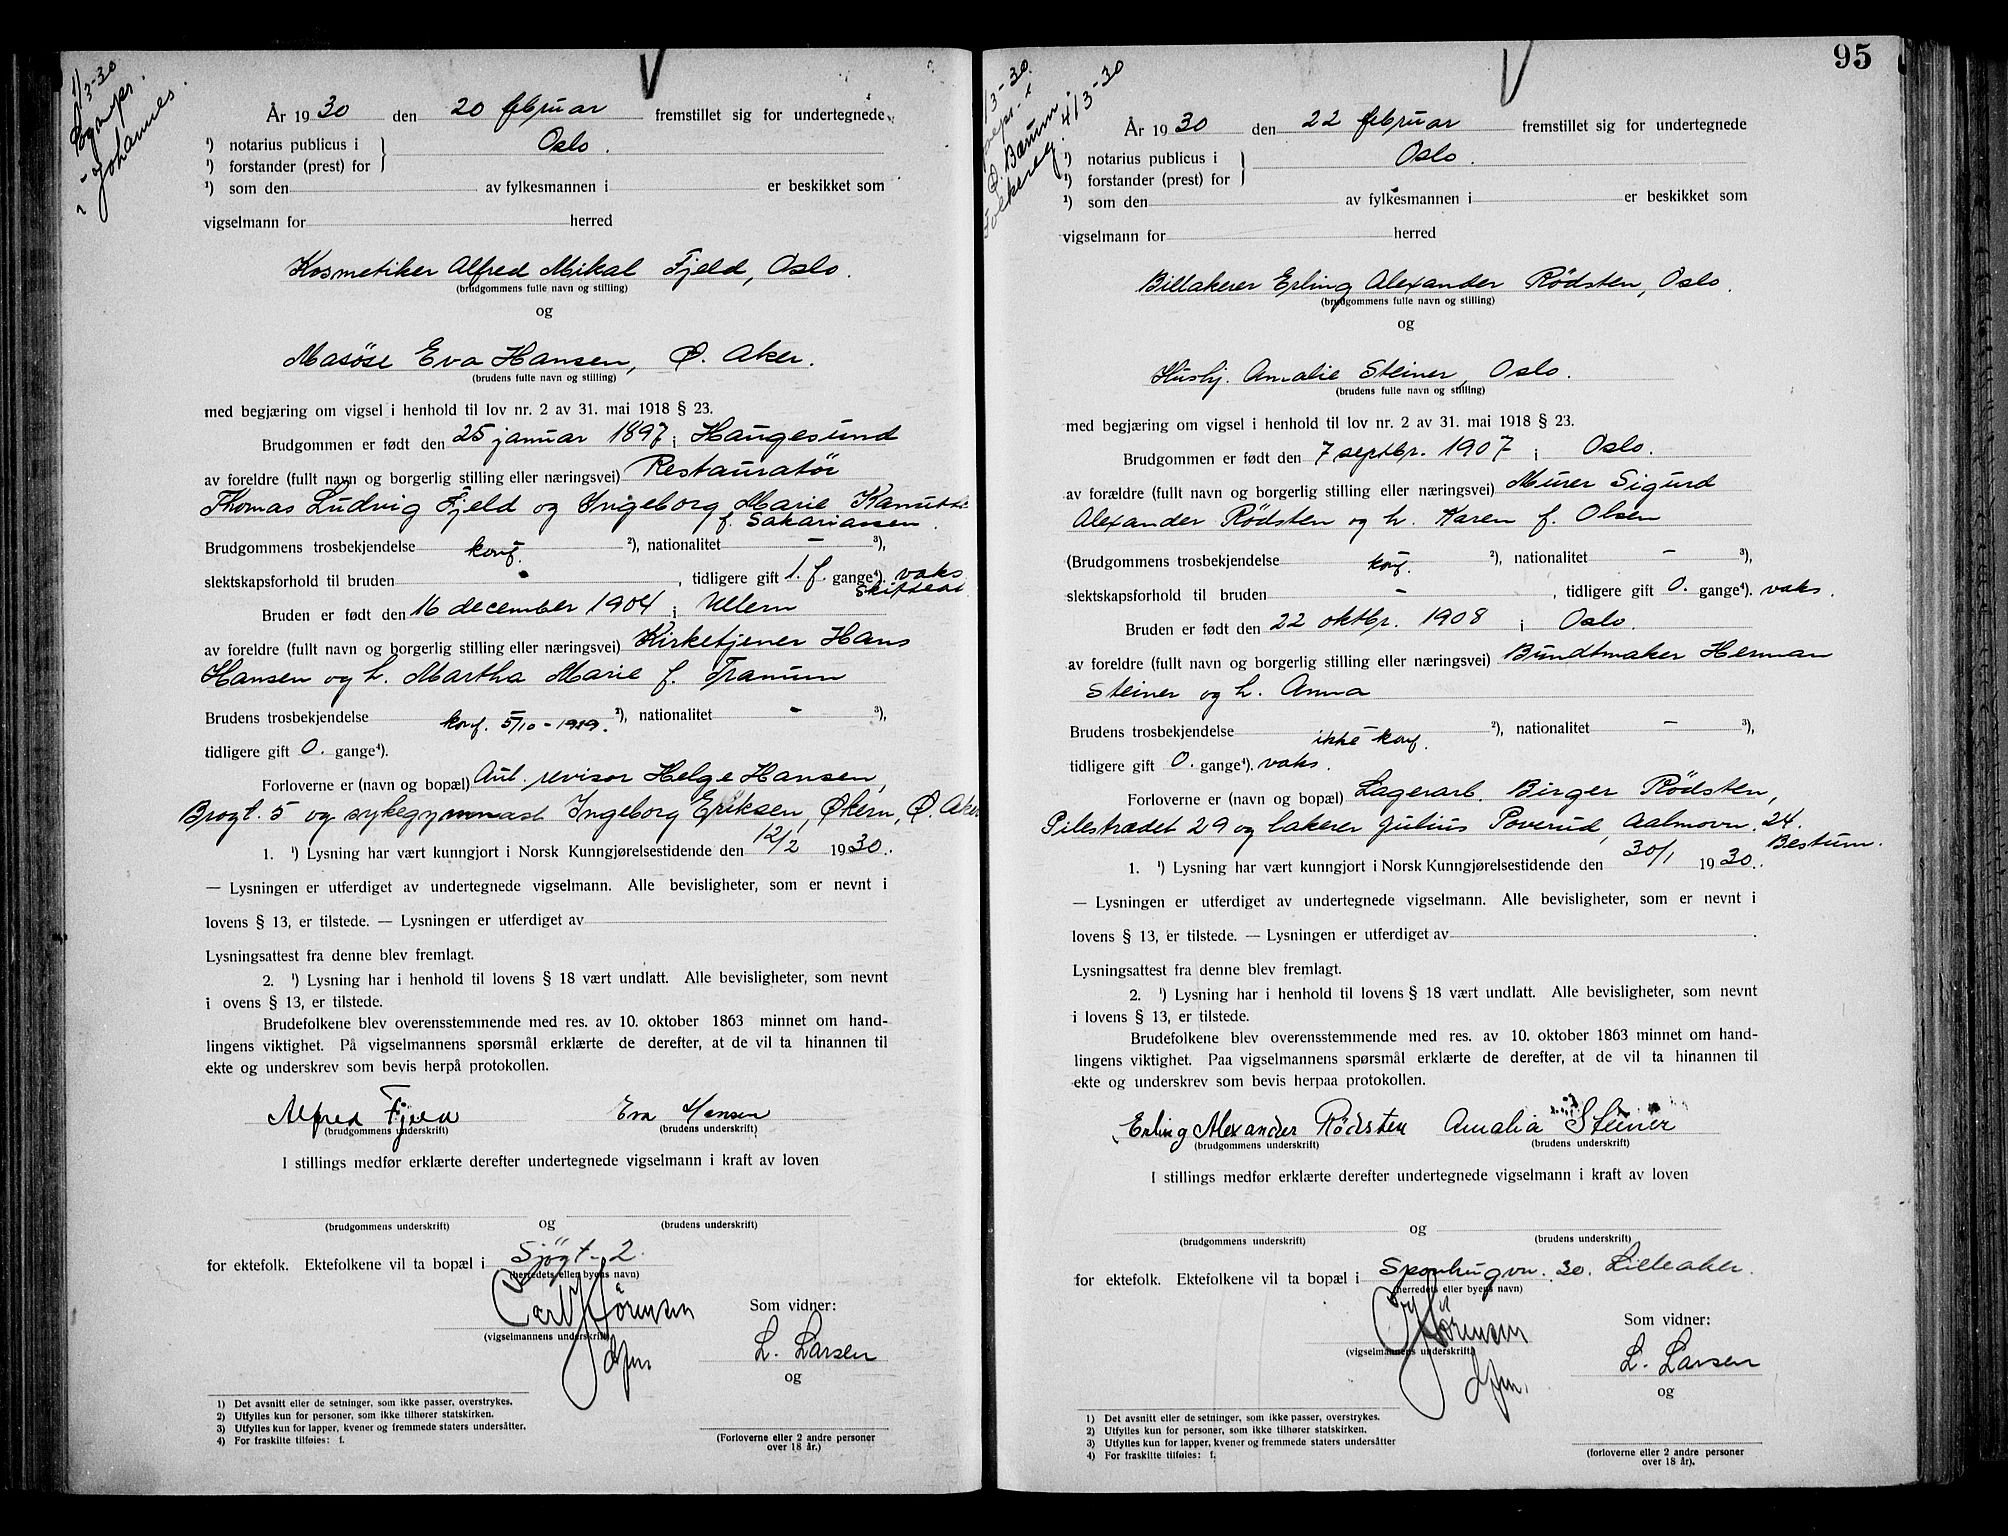 1/3-30
Johannes.
År 1930 den 20 februar fremstillet sig for undertegnede
¹) notarius publicus i Oslo.
¹) forstander (prest) for
¹) som den av fylkesmannen i er beskikket som
vigselmann for herred
Kosmetiker Alfred Mikal Fjeld, Oslo.
(brudgommens fulle navn og stilling)
og
Masøse Eva Hansen, Ø. Aker.
(brudens fulle navn og stilling)
med begjæring om vigsel i henhold til lov nr. 2 av 31. mai 1918 § 23.
Brudgommen er født den 25 januar 1897 i Haugesund
av foreldre (fullt navn og borgerlig stilling eller næringsvei) Restauratør
Thomas Ludvig Fjeld og Ingeborg Marie Kanutte
f. Sakariassen.
Brudgommens trosbekjendelse konf. ²), nationalitet — ³),
slektskapsforhold til bruden , tidligere gift 1. f. gange⁴). vaks
skiftede
Bruden er født den 16 december 1904 i Ullern
av foreldre (fullt navn og borgerlig stilling eller næringsvei) Kirketjener Hans
Hansen og h. Martha Marie f. Tranum
Brudens trosbekjendelse konf. 5/10-1919. ²), nationalitet - ³),
tidligere gift 0. gange⁴).
Forloverne er (navn og bopæl) Aut. revisor Helge Hansen,
Brogt. 5 og sykegymnast Ingeborg Eriksen, Økern, Ø. Aker
1. ¹) Lysning har vært kunngjort i Norsk Kunngjørelsestidende den 12/2 1930.
— Lysningen er utferdiget av undertegnede vigselmann. Alle bevisligheter, som er nevnt i
lovens § 13, er tilstede. — Lysningen er utferdiget av
Lysningsattest fra denne blev fremlagt.
2. ¹) Lysning har i henhold til lovens § 18 vært undlatt. Alle bevisligheter, som nevnt
i ovens § 13, er tilstede.
Brudefolkene blev overensstemmende med res. av 10. oktober 1863 minnet om hand-
lingens viktighet. På vigselmannens spørsmål erklærte de derefter, at de vil ta hinannen til
ekte og underskrev som bevis herpå protokollen.
Alfred Fjeld Eva Hansen
(brudgommens underskrift) (brudens underskrift)
I stillings medfør erklærte derefter undertegnede vigselmann i kraft av loven
og
(brudgommens underskrift) (brudens underskrift)
for ektefolk. Ektefolkene vil ta bopæl i Sjøgt. 2.
(herredets eller byens navn)
Carl Sørensen
(vigselmannens underskrift)
Som vidner:
L. Larsen
og
1) Det avsnitt eller de setninger, som ikke passer, overstrykes.
2) Utfylles kun for personer, som ikke tilhører statskirken.
3) Utfylles kun for lapper, kvener og fremmede staters undersåtter.
4) For fraskilte tilføies: f.
(Forloverne eller 2 andre personer
over 18 år.)
95
1/3-30
Ø. Bærum
4/3-30
År 1930 den 22 februar fremstillet sig for undertegnede
¹) notarius publicus i Oslo.
¹) forstander (prest) for
¹) som den av fylkesmannen i er beskikket som
vigselmann for herred
Billakerer Erling Alexander Rødsten, Oslo.
(brudgommens fulle navn og stilling)
og
Hushj. Amalie Steiner, Oslo.
(brudens fulle navn og stilling)
med begjæring om vigsel i henhold til lov nr. 2 av 31. mai 1918 § 23.
Brudgommen er født den 7 septbr. 1907 i Oslo.
av forældre (fullt navn og borgerlig stilling eller næringsvei) Murer Sigurd
Alexander Rødsten og h. Karen f. Olsen
(Brudgommens trosbekjendelse konf. ²), nationalitet — ³),
slektskapsforhold til bruden — , tidligere gift 0. gange⁴). vaks.
Bruden er født den 22 oktbr. 1908 i Oslo.
av foreldre (fullt navn og borgerlig stilling eller næringsvei) Bundtmaker Herman
Steiner og h. Anna
Brudens trosbekjendelse ikke konf. ²), nationalitet — ³),
tidligere gift 0. gange⁴). vaks.
Forloverne er (navn og bopæl) Lagerarb. Birger Rødsten,
Pilestrædet 29 og lakerer Julius Poverud, Aalmovn. 24.
Bestum.
1. ¹) Lysning har vært kunngjort i Norsk Kunngjørelsestidende den 30/1 1930.
— Lysningen er utferdiget av undertegnede vigselmann. Alle bevisligheter, som er nevnt i
lovens § 13, er tilstede. — Lysningen er utferdiget av
Lysningsattest fra denne blev fremlagt.
2. ¹) Lysning har i henhold til lovens § 18 vært undlatt. Alle bevisligheter, som nevnt
i lovens § 13, er tilstede.
Brudefolkene blev overensstemmende med res. av 10. oktober 1863 minnet om hand-
lingens viktighet. Paa vigselmannens spørsmål erklærte de derefter, at de vil ta hinannen til
ekte og underskrev som bevis herpaa protokollen.
Erling Alexander Rødsten Amalia Steiner
(brudgommens underskrift) (brudens underskrift)
I stillings medfør erklærte derefter undertegnede vigselmann i kraft av loven
og
(brudgommens underskrift) (brudens underskrift)
for ektefolk. Ektefolkene vil ta bopæl i 30. Lilleaker.
(herredets eller byens navn)
Sørensen
(vigselmannens underskrift)
Som vidner:
L. Larsen
og
1) Det avsnitt eller de setninger, som ikke passer, overstrykes.
2) Utfylles kun for personer, som ikke tilhører statskirken.
3) Utfylles kun for lapper, kvener og fremmede staters undersåtter
4) For fraskilte tilføies: f.
(forloverne eller 2 andre personer
over 18 år).